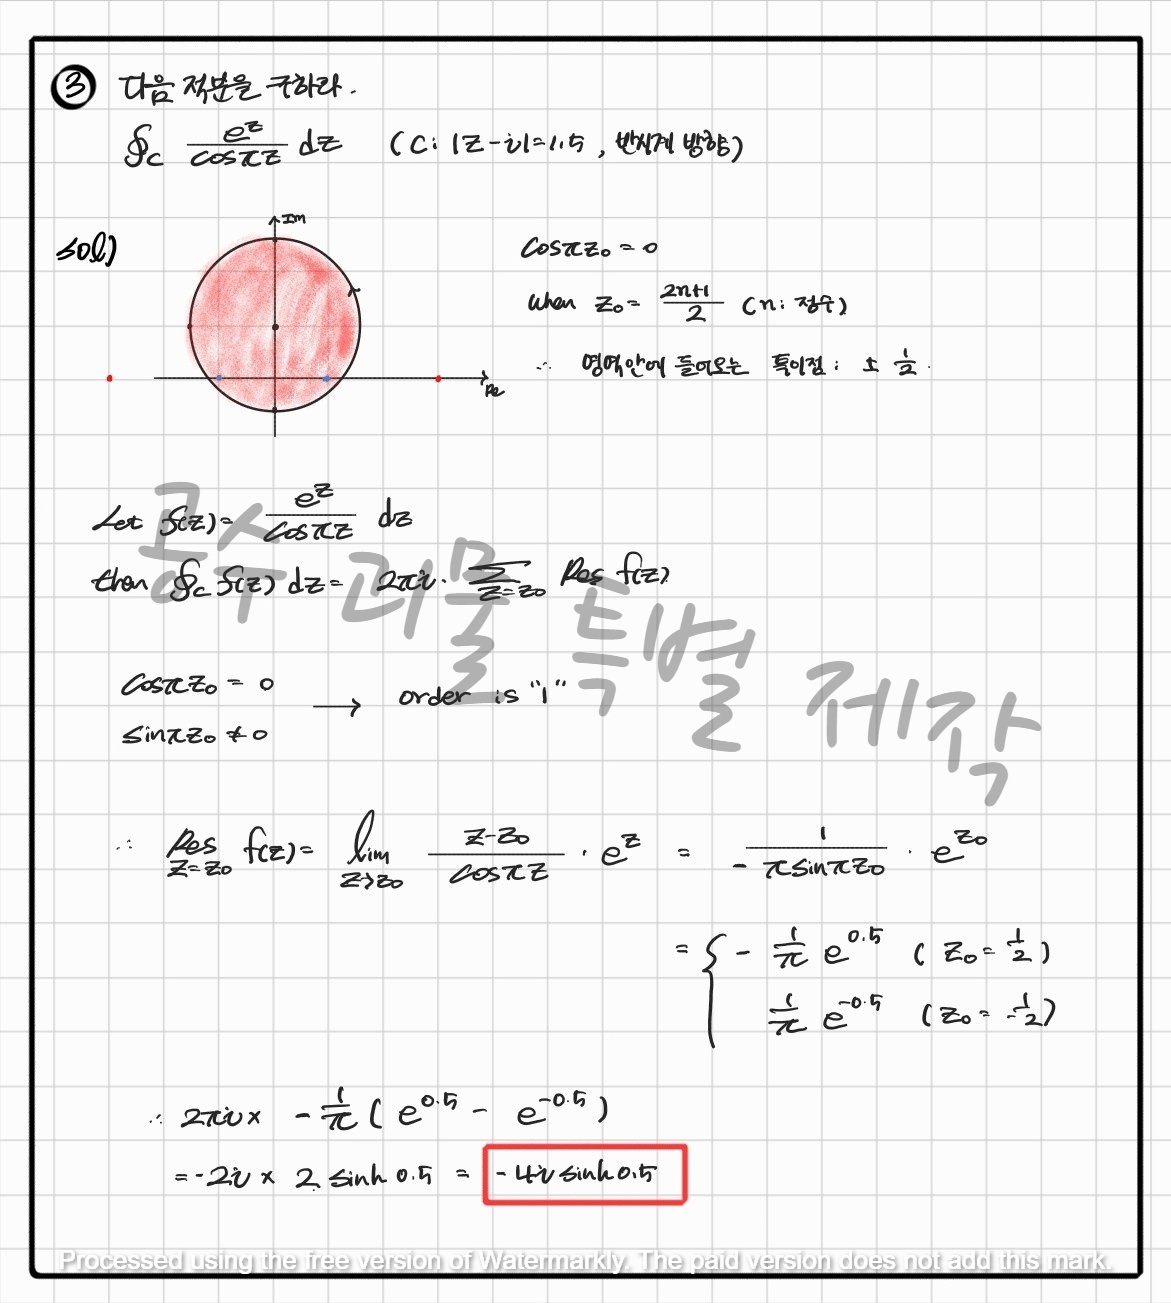 ③ 다음 적분을 구하라.
∮c e^z / cosπz dz (C: |z-i|=1.5, 반시계 방향)
sol)
Im
Re
cosπz₀ = 0
when z₀ = (2n+1)/2 (n: 정수)
∴ 영역안에 들어오는 특이점: ± 1/2.
Let f(z)= e^z / cosπz dz
then ∮c f(z) dz = 2πi · Σ_{z=z₀} Res f(z)
cosπz₀ = 0
sinπz₀ ≠ 0
→ order is "1"
∴ Res_{z=z₀} f(z)= lim_{z→z₀} (z-z₀)/cosπz · e^z = 1/(-πsinπz₀) · e^{z₀}
= { - 1/π e^{0.5} (z₀ = 1/2)
1/π e^{-0.5} (z₀ = -1/2)
∴ 2πi × - 1/π ( e^{0.5} - e^{-0.5} )
= -2i × 2 sinh 0.5 = -4i sinh 0.5
공수 괴물 특별 제작
Processed using the free version of Watermarkly. The paid version does not add this mark.